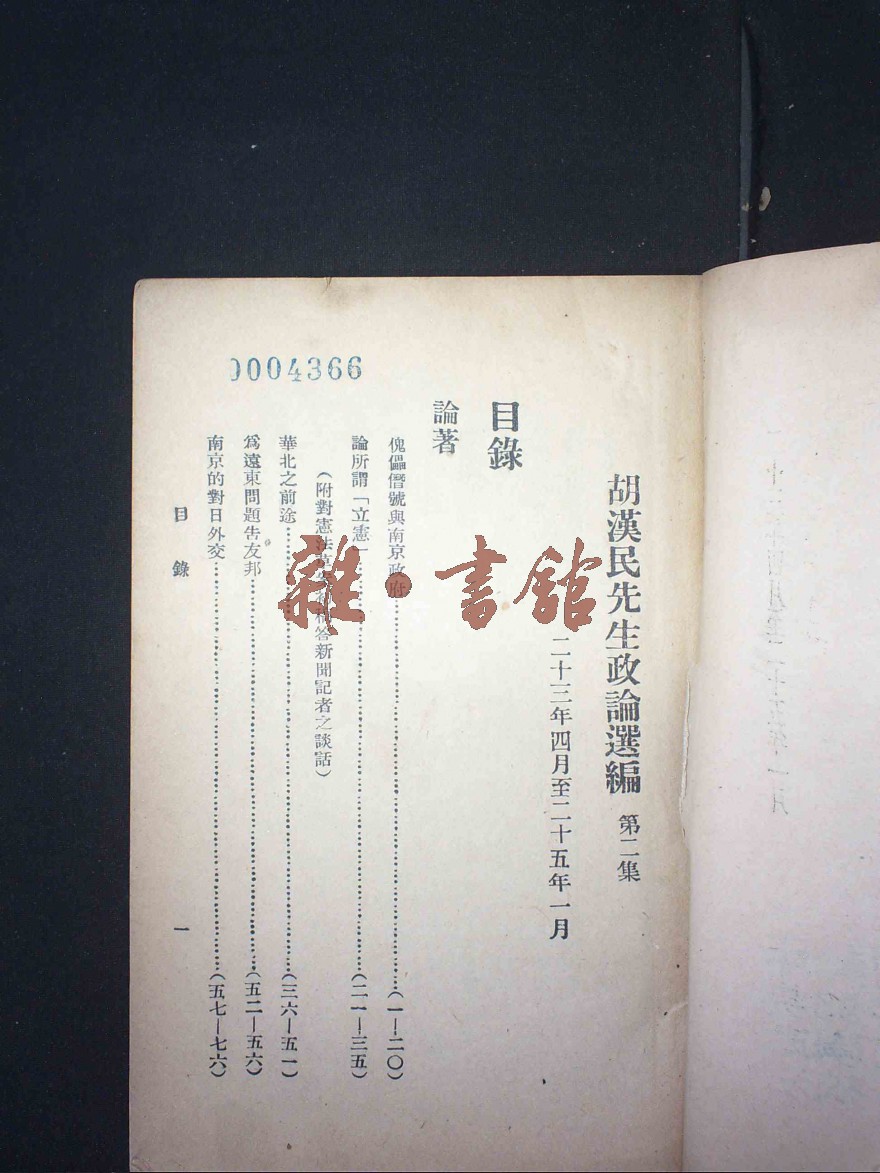 胡漢民先生政論選編 第二集
二十三年四月至二十五年一月
目錄
論著
傀儡僭號與南京政府…………(一—二〇)
論所謂「立憲」…………(二一—三五)
(附對憲法草案初稿答新聞記者之談話)
華北之前途…………(三六—五一)
爲遠東問題吿友邦…………(五二—五六)
南京的對日外交…………(五七—七六)
目錄
一
0004366
雜·書館